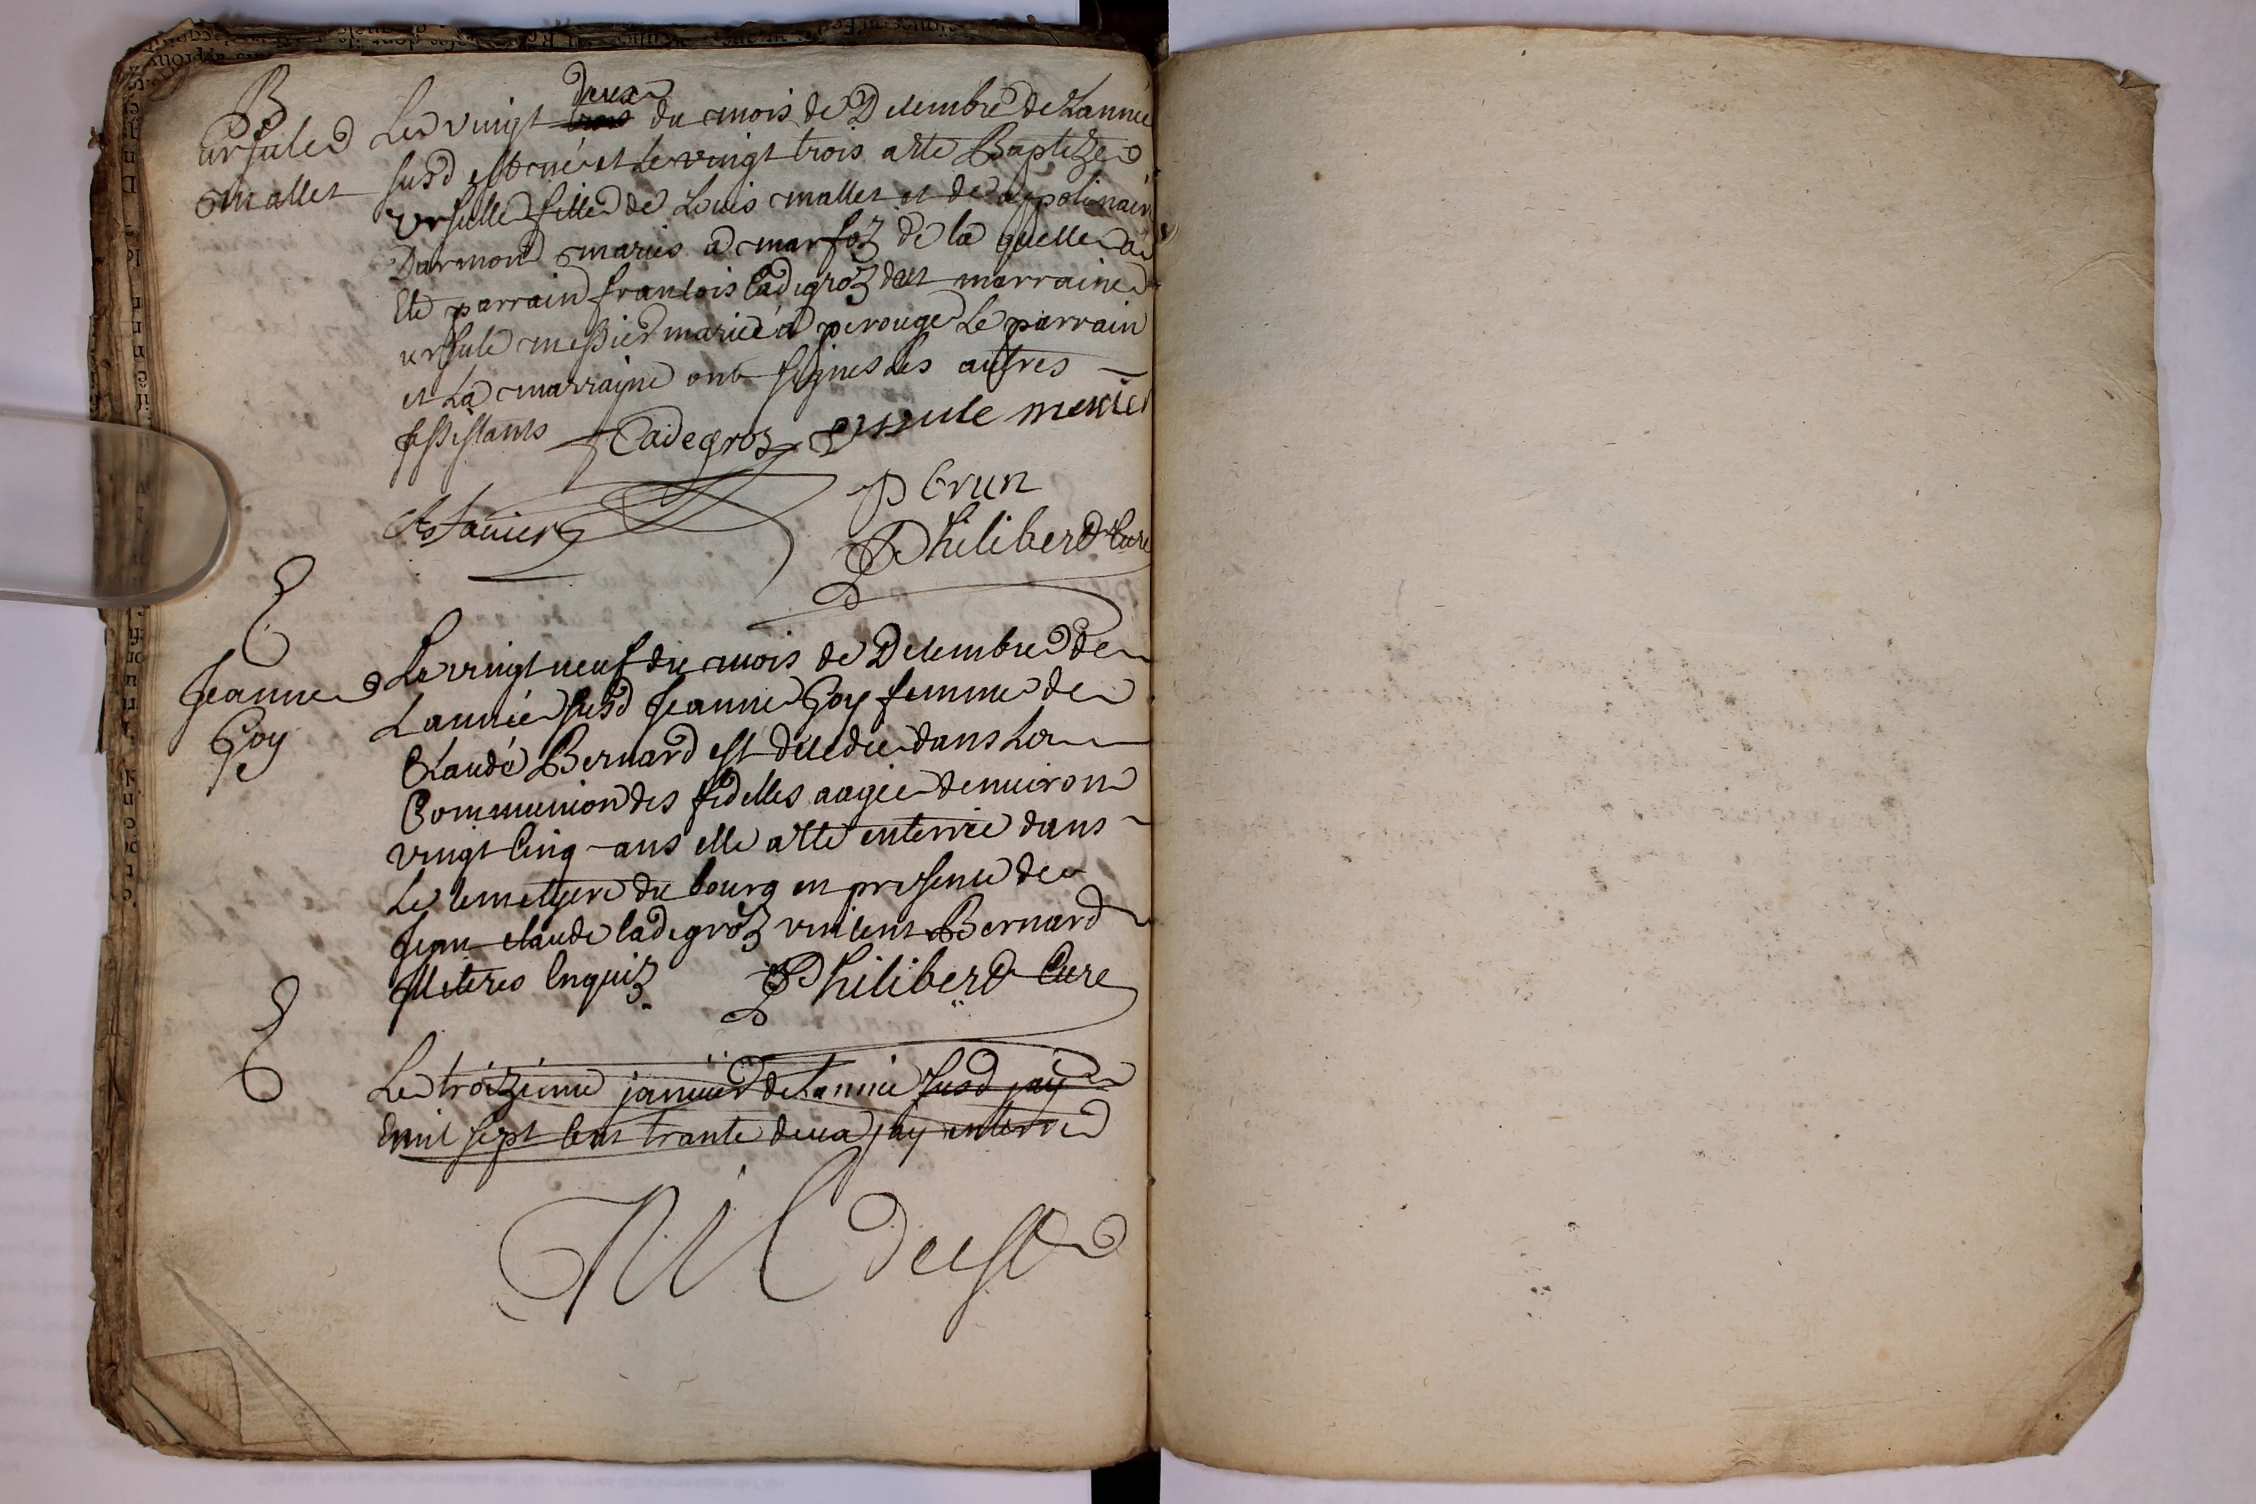 B
ursule
mallet
Le vingt trois deux du mois de Decembre de Lannée
susd est née et Le vingt trois a ete Baptizee
urfulle fille de Louis mallet et de appolinaire
Darmond mariés a marfoz de la quelle a
Ete parrain francois Cadegroz et marraine
ursule messier mariée a perouge Le parrain
et La marraine ont signes Les autres
assistants Cadegroz ursule mexier
P brun
Philiberd Cure
E
Jeanne
Goy
Le vingt neuf du mois de Decembre de
Lannée susd Jeanne Goy femme de
Claude Bernard est decedee dans La
Communion des fidelles aagee denuiron
vingt Cinq ans elle a ete enterrée dans
Le Cemettyere du bourg en presence de
Jean claude Cadegroz vincent Bernard
Illiteres Enquiz Philiberd Cure
E
Le troizieme januier de Lannée susd jay
mil sept Cent trante deux jay enterré